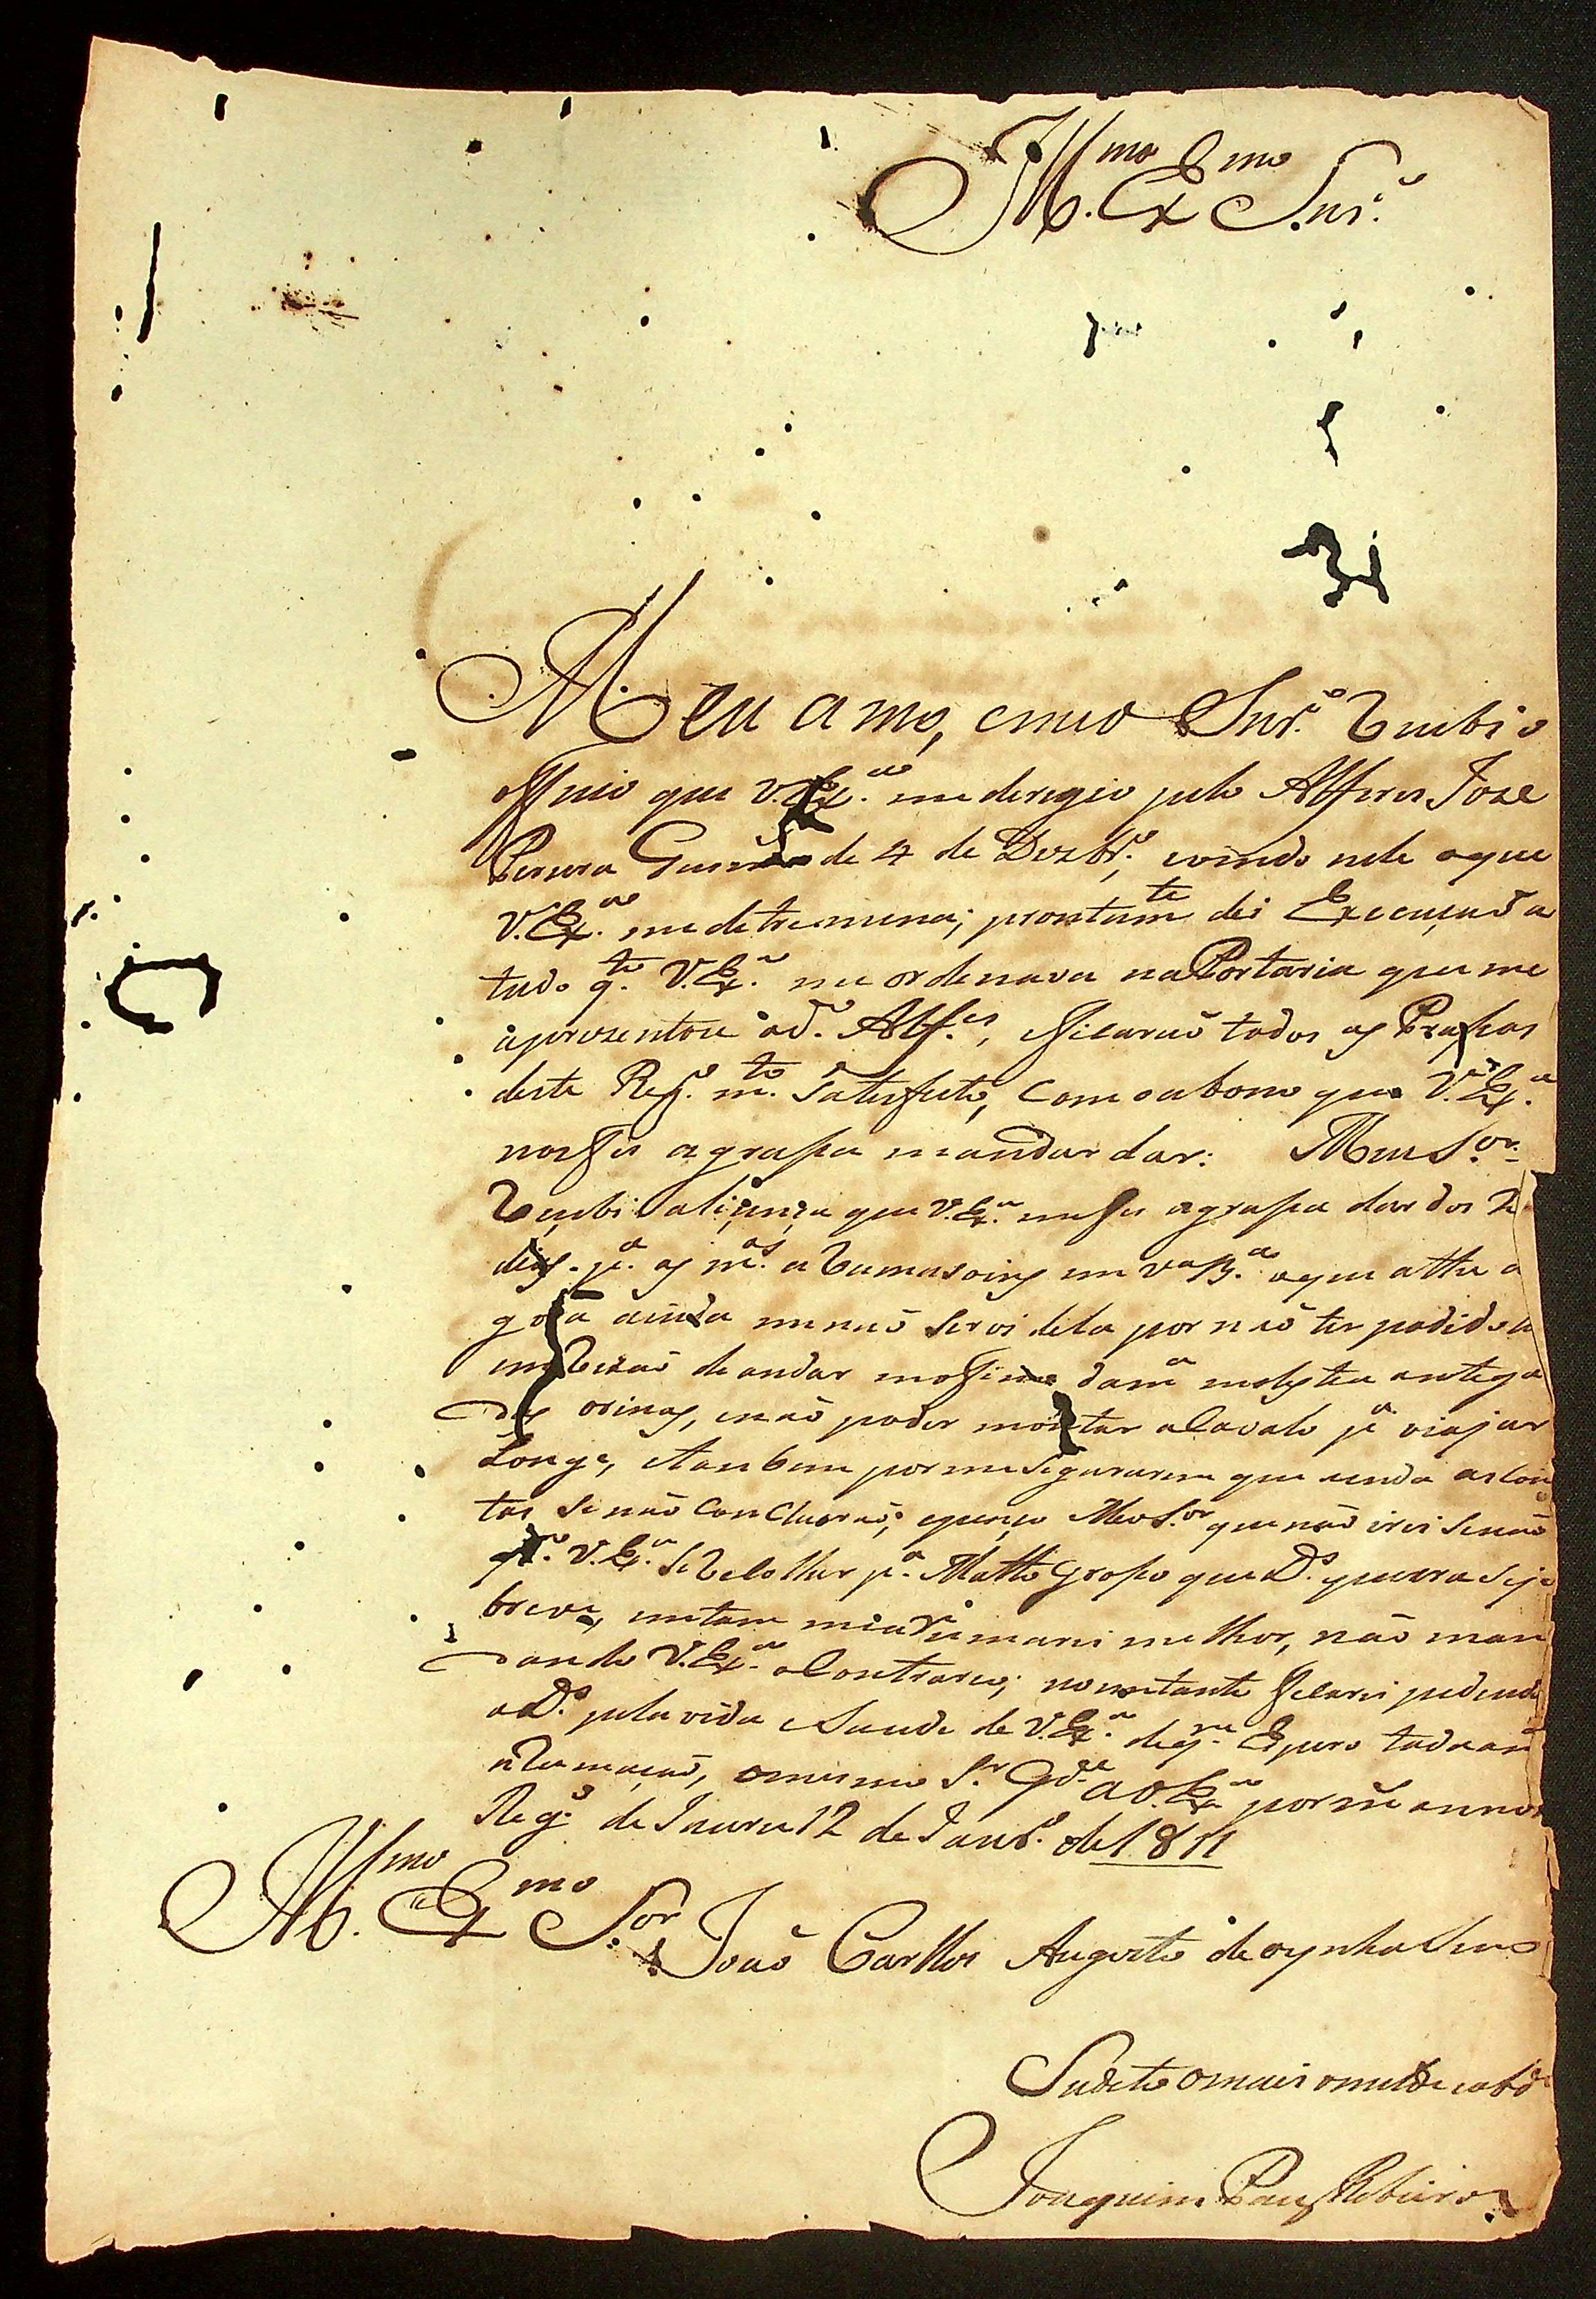 Ill.mo Ex.mo Snr.o
Meu amo, e meo Snr.o Recebi o
officio que V. Ex.a me deregio pelo Alferes Joze
Pereira de 4 de Dezbr.o, vendo nele o que
V. Ex.a me detremina; prontam.te dei Execução a
tudo q.to V. Ex.a me ordenava na Portaria que me
aprezentou o d.o Alf.es, ficarão todos as Prassas
deste Reg.o m.to Satesfeito, com o abono que V. Ex.a
nos fes a grassa mandar dar: Meu S.or
Recebi a licença que V. Ex.a me fes a grassa dar dos 2
p.a as m.as a Cumasoins em V.a B.a o que athe a
gora ainda me não Servi dela por não ter podido
de andar da m.a molestea antega
das orinas, e não poder montar a Cavalo p.a viajar
Longe, e tanbem por me Segurarem que ainda as Con
tas Se não Concluirão; e pesso Meo S.or que não irei Senão
q.do V. Ex.a Se Recolher p.a Matto Grosso que D.s queira Seja
breve, entam me aRumarei melhor, não man
dando V. Ex.a o Contrareo; no entanto ficarei pedindo
a D.s pela vida e Saude de V. Ex.a de q.m Espero toda a
o mesmo S.r G.de a V. Ex.a por m.s annos
Reg.o de Jauru 12 de Janr.o de 1811
Ill.mo Ex.mo S.or João Carllos Augusto de oynhauzen
Sudeto o mais omilde
Joaquim Pais Ribeiro